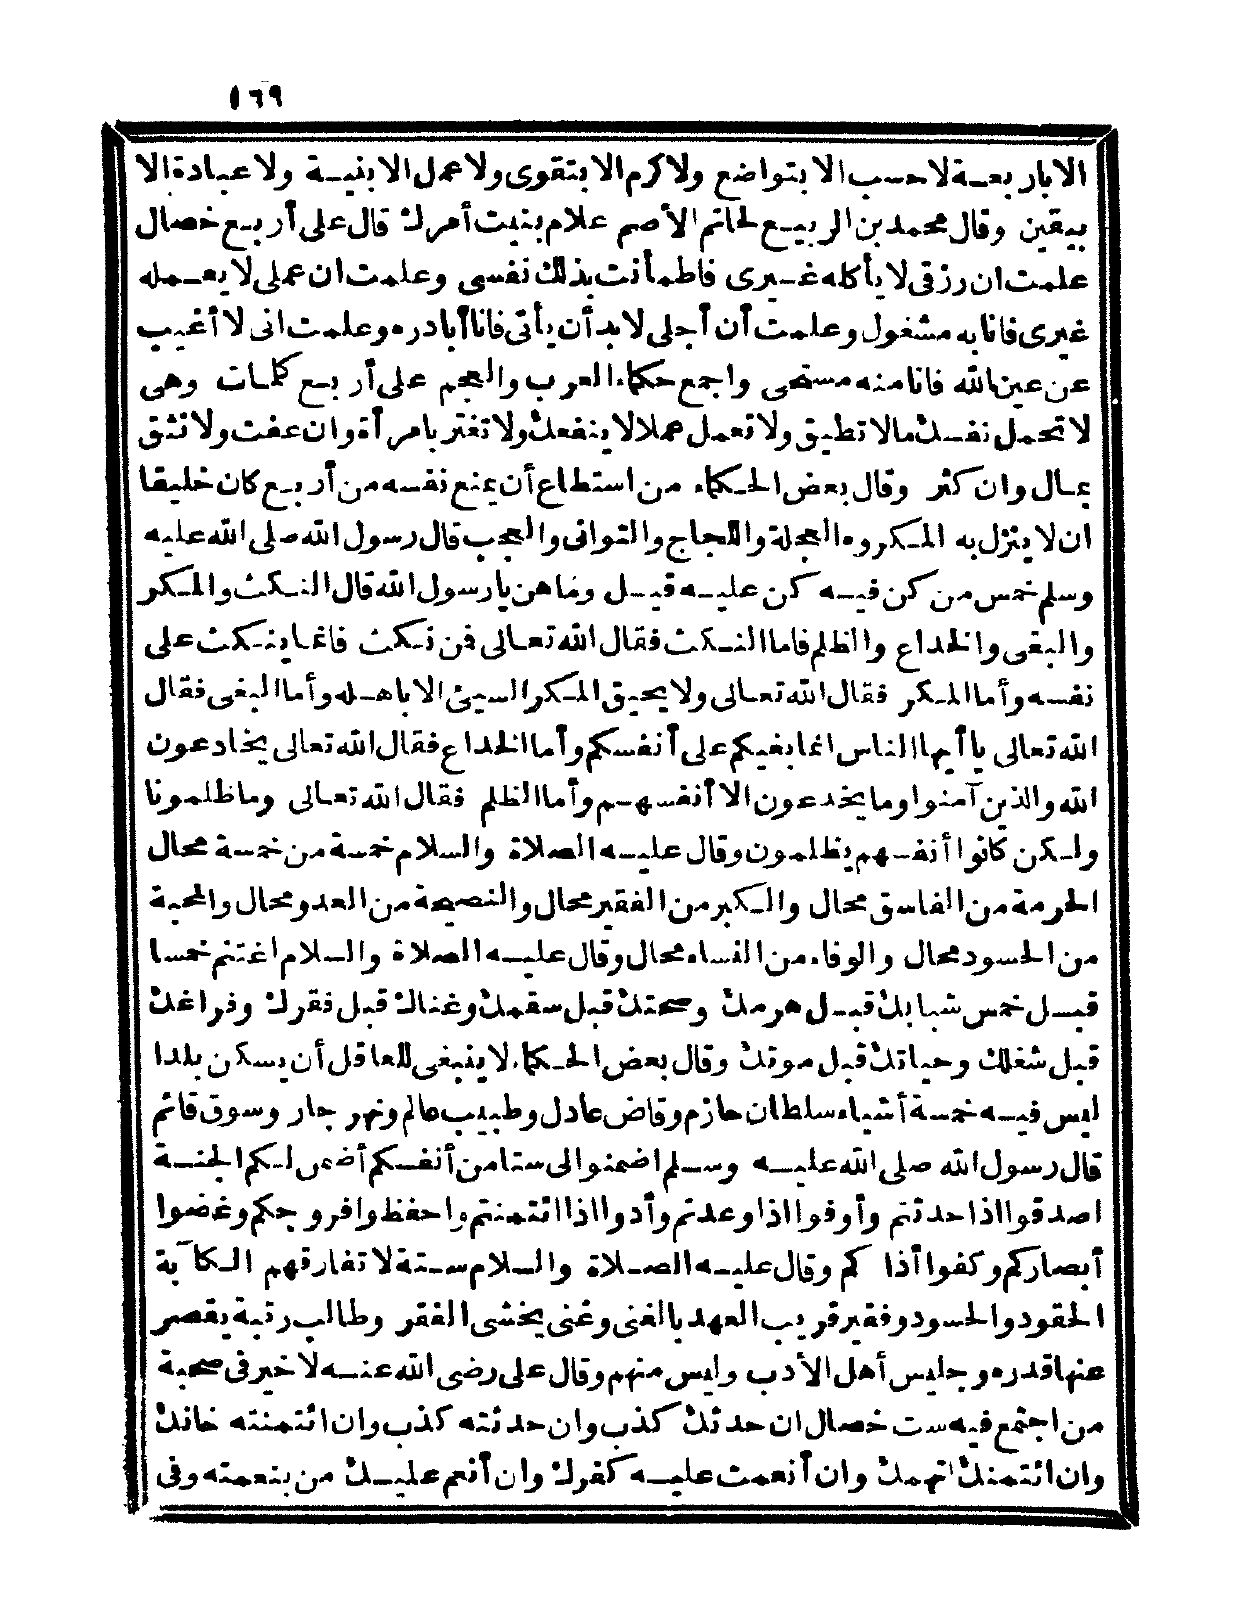 ١٦٩
الا باربعة لا حسب الا بتواضع ولا كرم الا بتقوى ولا عمل الا بنية ولا عبادة الا
بيقين وقال محمد بن الربيع لحاتم الأصم علام بنيت أمرك قال على أربع خصال
علمت ان رزقى لا يأكله غيرى فاطمأنت بذلك نفسى وعلمت ان عملى لا يعمله
غيرى فانا به مشغول وعلمت أن أجلى لا بد أن يأتى فانا أبادره وعلمت انى لا أغيب
عن عين الله فانا منه مستحى واجمع حكماء العرب والعجم على أربع كلمات وهى
لا تحمل نفسك مالا تطيق ولا تعمل عملا لا ينفعك ولا تغتر بامرأة وان عفت ولا تثق
بمال وان كثر وقال بعض الحكماء من استطاع أن يمنع نفسه من أربع كان خليقا
ان لا ينزل به المكروه العجلة واللجاج والتوانى والعجب قال رسول الله صلى الله عليه
وسلم خمس من كن فيه كن عليه قيل وما هن يا رسول الله قال النكث والمكر
والبغى والخداع والظلم فاما النكث فقال الله تعالى فمن نكث فانما ينكث على
نفسه وأما المكر فقال الله تعالى ولا يحيق المكر السيئ الا باهله وأما البغى فقال
الله تعالى يا أيها الناس انما بغيكم على أنفسكم وأما الخداع فقال الله تعالى يخادعون
الله والذين آمنوا وما يخدعون الا أنفسهم وأما الظلم فقال الله تعالى وما ظلمونا
ولكن كانوا أنفسهم يظلمون وقال عليه الصلاة والسلام خمسة من خمسة محال
الحرمة من الفاسق محال والكبر من الفقير محال والنصيحة من العدو محال والمحبة
من الحسود محال والوفاء من النساء محال وقال عليه الصلاة والسلام اغتنم خمسا
قبل خمس شبابك قبل هرمك وصحتك قبل سقمك وغناك قبل فقرك وفراغك
قبل شغلك وحياتك قبل موتك وقال بعض الحكماء لا ينبغى للعاقل أن يسكن بلدا
ليس فيه خمسة أشياء سلطان حازم وقاض عادل وطبيب عالم ونهر جار وسوق قائم
قال رسول الله صلى الله عليه وسلم اضمنوا لى ستا من أنفسكم أضمن لكم الجنة
اصدقوا اذا حدثتم وأوفوا اذا وعدتم وأدوا اذا ائتمنتم واحفظوا فروجكم وغضوا
أبصاركم وكفوا أذاكم وقال عليه الصلاة والسلام ستة لا تفارقهم الكآبة
الحقود والحسود وفقير قريب العهد بالغنى وغنى يخشى الفقر وطالب رتبة يقصر
عنها قدره وجليس أهل الأدب وليس منهم وقال على رضى الله عنه لا خير فى صحبة
من اجتمع فيه ست خصال ان حدثك كذب وان حدثته كذب وان ائتمنته خانك
وان ائتمنك اتهمك وان أنعمت عليه كفرك وان أنعم عليك من بنعمته وفى